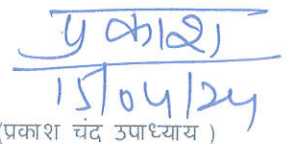 प्रकाश
15/04/24
(प्रकाश चंद उपाध्याय )